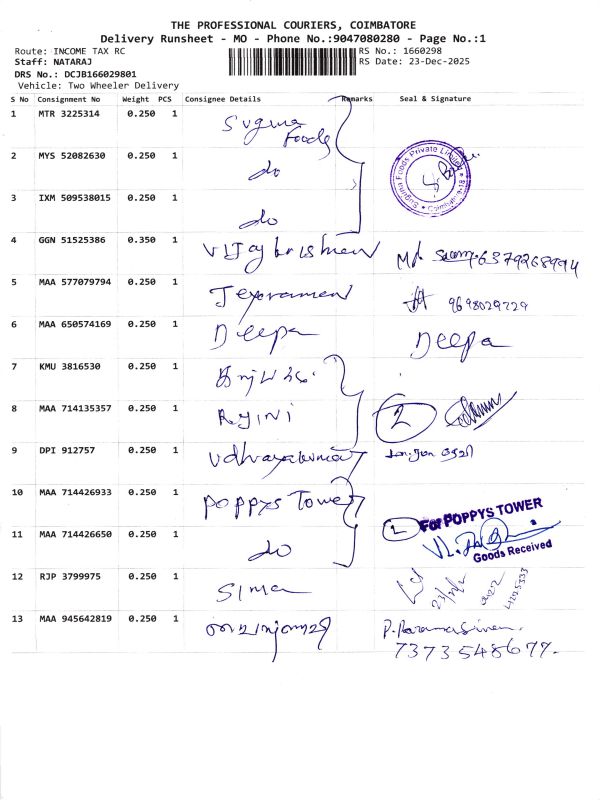 THE PROFESSIONAL COURIERS, COIMBATORE
Delivery Runsheet - MO - Phone No.:9047080280 - Page No.:1
Route: INCOME TAX RC
RS No.: 1660298
Staff: NATARAJ
RS Date: 23-Dec-2025
DRS No.: DCJB166029801
Vehicle: Two Wheeler Delivery
S No Consignment No Weight PCS Consignee Details Remarks Seal & Signature
1 MTR 3225314 0.250 1 Suguna Foods
2 MYS 52082630 0.250 1 do
Suguna Foods Private Limited
Coimbatore-18
3 IXM 509538015 0.250 1 do
4 GGN 51525386 0.350 1 Vijay krishnan 6379268994
5 MAA 577079794 0.250 1 Jeyaraman 9698029729
6 MAA 650574169 0.250 1 Deepa Deepa
7 KMU 3816530 0.250 1
8 MAA 714135357 0.250 1 Rajini 2
9 DPI 912757 0.250 1 Udhayakumar
10 MAA 714426933 0.250 1 Poppys Tower
For POPPYS TOWER
11 MAA 714426650 0.250 1 do
Goods Received
12 RJP 3799975 0.250 1 Sima
13 MAA 945642819 0.250 1 P. Paramasivan.
7373548677.